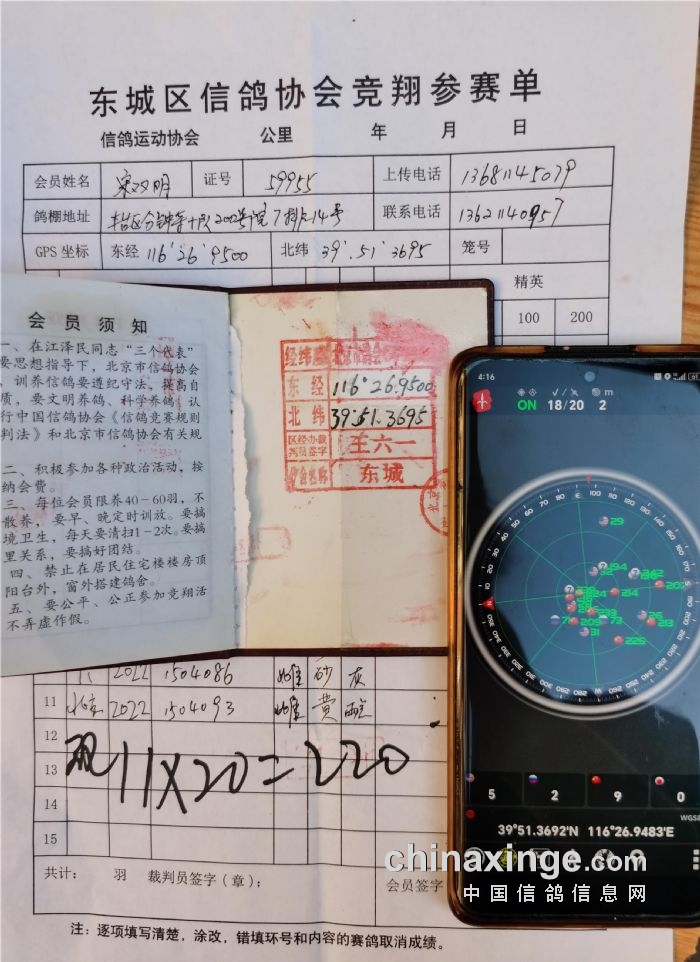 东城区信鸽协会竞翔参赛单
信鸽运动协会 公里 年 月 日
会员姓名 宋双明 证号 59955 上传电话 13681145079
鸽棚地址 200号院7排14号 联系电话 13621140957
GPS 坐标 东经 116°26'9500 北纬 39°.51'3695 笼号
精英
100 200
会员须知
一、在江泽民同志“三个代表”
要思想指导下，北京市信鸽协会
，训养信鸽要遵纪守法，提高自
质，要文明养鸽、科学养鸽、认
行中国信鸽协会《信鸽竞赛规则
判法》和北京市信鸽协会有关规
二、积极参加各种政治活动，按
纳会费。
三、每位会员限养40-60羽，不
散养，要早、晚定时训放。要搞
境卫生，每天要清扫1-2次。要搞
里关系，要搞好团结。
四、禁止在居民住宅楼楼房顶
阳台外，窗外搭建鸽舍。
五、要公平、公正参加竞翔活
不弄虚作假。
东经 116°26.9500
北纬 39°51.3695
王六一
协会名称 东城
4:16
ON 18/20 2
m
29
194
242
214
209
213
31
225
5 2 9 0
WGS8
39°51.3692'N 116°26.9483'E
2022 1504086 雌 砂 灰
11 北京 2022 1504093 雌 黄
12
13
14
15
11X20=220
共计： 羽 裁判员签字（章）： 会员签字
chinaxinge.com
中国信鸽信息网
注：逐项填写清楚，涂改，错填环号和内容的赛鸽取消成绩。